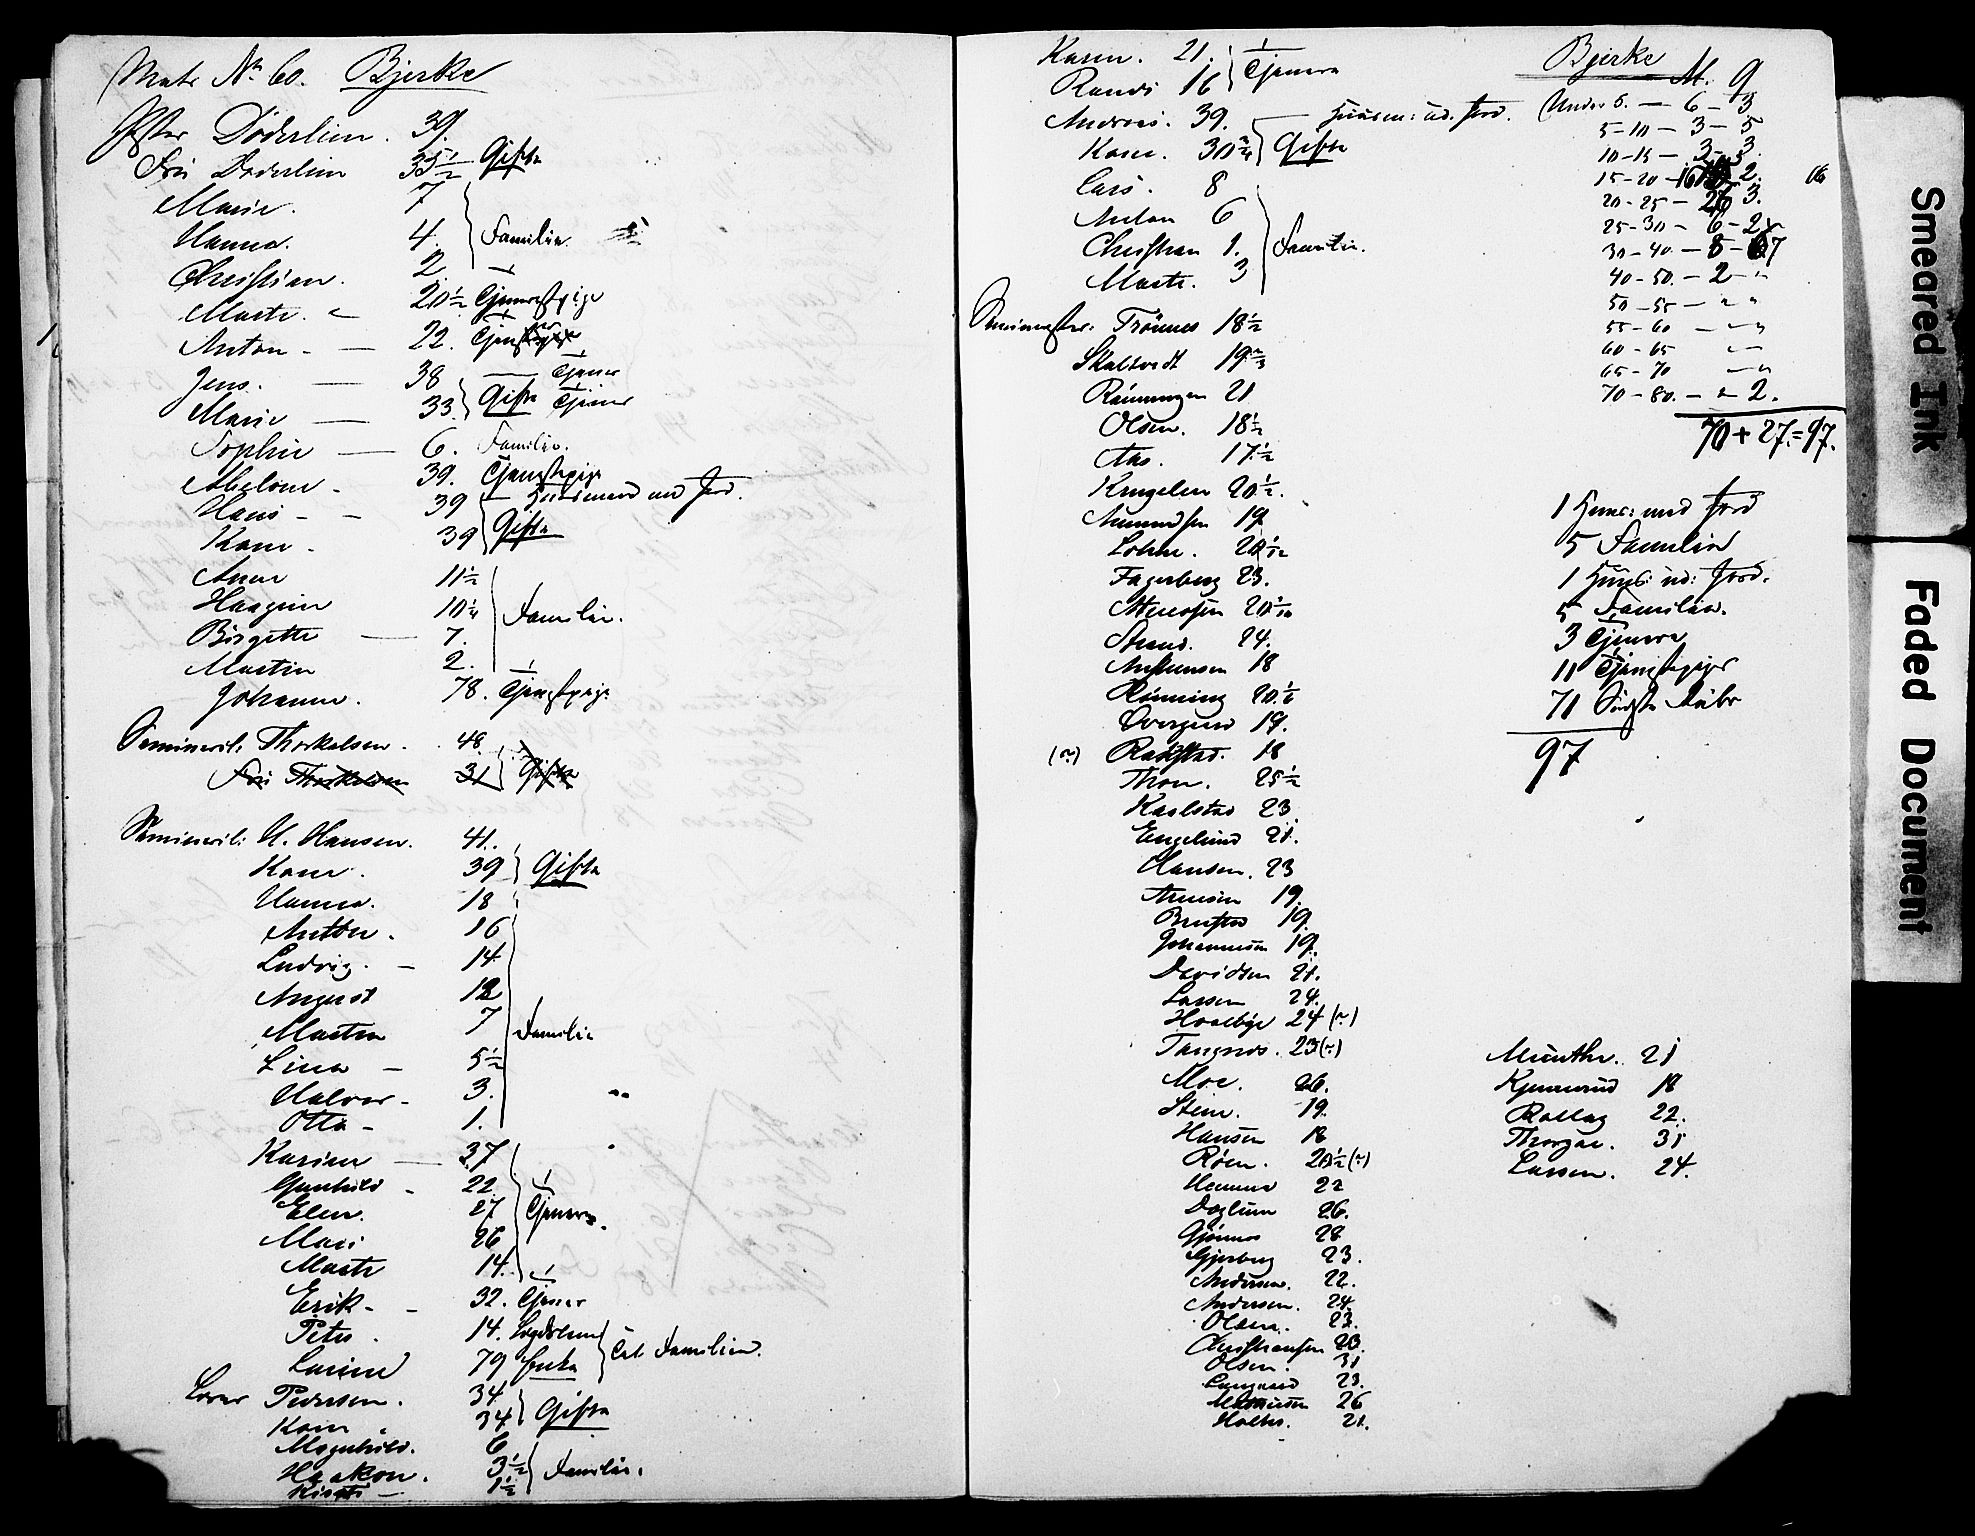 Matr No 60. Bjerke
Døderlein. 39.
Fru Døderlein 35 1/2 Gifte
Marie. 7
Hanna. 4. Familie.
Christian. 2.
Marte. 20 1/2 Tjenestepige
Anton - 22.
Jens. 38 Tjener
Marie 33. Gifte Tjener
Sophie 6. Familie.
Abelone - 39. Tjenestepige
Hans - 39 Huusmand med Jord.
Kari - 39 Gifte
Anne 11 1/2
Haagine 10 1/4 Familie.
Birgitte 7.
Martin 2.
Johanne. 78. Tjenestepige
Seminaril: Thorkelsen. 48.
Fru Thorkelsen 31 Gifte
Seminaril: H. Hansen. 41.
Kari. 39 Gifte
Hanna. 18
Anton. 16
Ludvig. - 14
August 12
Martin 7 Familie
Lina - 5 1/2
Halvor - 3.
Otto - 1.
Karine 37
Gunhild - 22
Elen. 27 Tjenere.
Mari 26
Marte 14.
Erik - - 32. Tjener
Peter. 14.
Larine 79 Enke Familien.
Lærer Pedersen. 34
Kari. 34 Gifte
Magnhild. 6
Haakon. 3 1/2 Familie.
1 1/2
Karen. 21. Tjenere
Randi 16
Andreas. 39. Huusm: ud. Jord.
Kari. 30 3/4 Gifte
Lars. 8
Anton 6
Christian 1. Familie.
Marte. 3
Trönnes 18 1/2
Skaltvedt 19 2/3
Rønningen 21
Olsen. 18 1/2
Aas. 17 1/2
Krogelien 20 1/2.
Amundsen 19
Lohne. 20 1/12
Fagerberg 23.
20 1/10
Strand. 24.
18
Rönning 20 1/6
Overgaard 19.
(~) Rakstad. 18
Thon. 25 1/2
Karlstad 23
Engelund 21.
Hansen. 23
Arnesen 19.
19.
Johannesen 19.
Davidsen 21.
Larsen 24.
Hvalbye 24 (~)
Tangnes. 23 (~)
Moe. 26.
Stein. 19.
Hansen 18
Röen. 20 1/2 (~)
22
Doglum 26.
Gjønnes 28
Gjerberg 23.
Andersen. 22.
Andersen. 24.
Olsen. 23.
Christiansen 20.
Olsen. 31
23.
26
Holter. 21.
Bjerke
M. Q
Under 5. - 6 - 3
5-10 - 3 - 5
10-15 - 3 - 3.
15-20 - 16 - 2. 16
20-25 - 26 3.
25-30 - 6 - 2
30-40 - 8 - 7
40-50. - 2 - "
50-55 - " "
55-60 - "
60-65 "
65-70 - "
70-80. - " 2.
70 + 27. = 97.
1 Huusm: med Jord
5 Familie
1 Huusm: ud: Jord.
5 Familie.
3 Tjenere
11 Tjenestepiger
71
97
Münthe. 21
Kjennerud 18
Rollag 22.
Thorgar. 31
Larsen. 24.
Smeared Ink
Faded Document